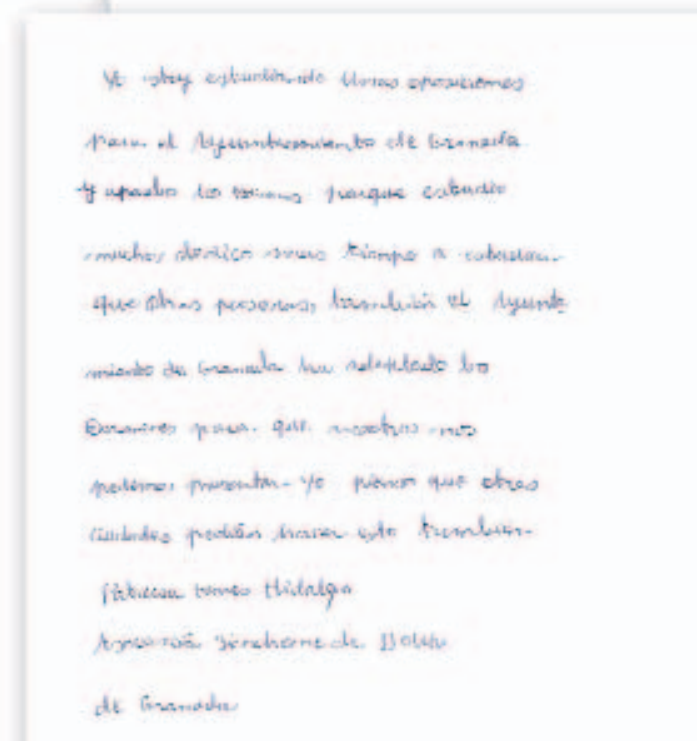 Yo estoy estudiando Unas oposiciones
para el Ayuntamiento de Granada
y apruebo los temas porque estudio
mucho, dedico mas tiempo a estudiar
que otras personas, también el Ayunta
miento de Granada ha adaptado los
Examenes para que nosotros nos
podamos presentar. yo pienso que otras
Ciudades podrian hacer esto tambien.
Hidalgo
Sindrome de Down
de Granada